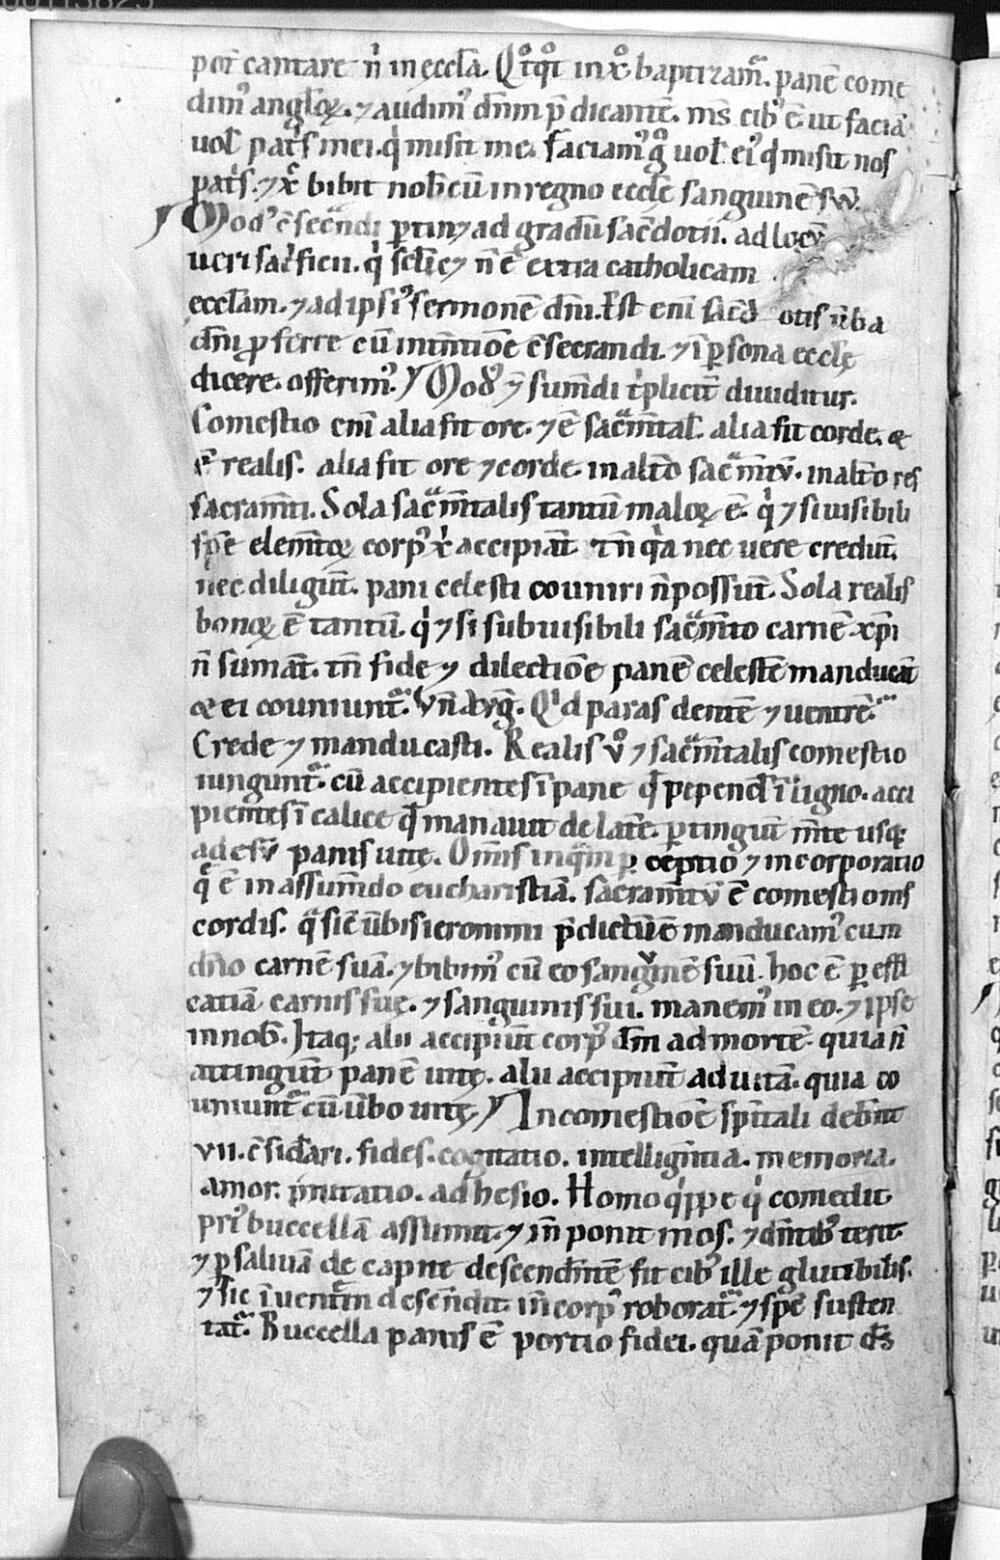 00113825
por̃ cantare n̄ in ęccl̃a. Qͦtqͦt in xͦ baptizam̃. panē come
dimꝰ angl̃oꝝ. ⁊ audimꝰ dn̄m p̄dicantē. ms̄ cibꝰ ē ut faciā
uol̃ pat̃s mei. qͥ misit me. faciamꝰ gͦ uol̃ eiꝰ qͥ misit nos
pat̃s. ⁊ xp̄c bibit nob̄cū in regno eccl̃e sanguinē suū.
Modꝰ ↄ̄secᷓndi ꝑtin⁊ ad gradū sac̄dotii. ad locū
ueri sac̃ficii. qͥ scl̃ic⁊ n̄ ē extra catholicam
eccl̃am. ⁊ ad ipsiꝰ sermonē dn̄i. Est enī sac̄d otis ūba
dn̄i ꝓferre cū int̄ntiōe ↄ̄secrandi. ⁊ ī ꝑsona eccl̃ę
dicere. offerimꝰ. Modꝰ ū̄ sum̄di tͥplicit̄ diuiditur.
Comestio enī alia fit ore. ⁊ ē sacᷓm̄tal̃. alia fit corde. &
ē realis. alia fit ore ⁊ corde. in alt̄o sacᷓm̄tū. in alt̄o res
sacram̄ti. Sola sacᷓm̄talis tantū maloꝝ ē. qͥ ⁊ si uisibili
sp̄e elem̄toꝝ corpꝰ xͥ accipiāt tn̄ qͥa nec uere credūt.
nec diligūt. pani celesti couniri n̄ possūt. Sola realis
bonoꝝ ē tantū. qͥ ⁊ si sub uisibili sacᷓm̄to carnē xp̄i
n̄ sumāt. tn̄ fide ⁊ dilectiōe panē celestē manducāt
& ei couniunt᷑. Vn̄ Avḡ. Qͥd paras dentē ⁊ uentrē.
Crede ⁊ manducasti. Realis ūͦ ⁊ sacᷓm̄talis comestio
iungunt᷑. cū accipientes ī pane qd̄ pependit ī ligno. acci
pientes ī calice qd̄ manauit de latē. ꝑtingūt m̄te usqꝫ
ad esū panis uitę. Om̄is inqᷓm ꝑceptio ⁊ incorporatio
qᷓ ē in assum̄do eucharistiā. sacram̄tū ē comestionis
cordis. qᷓ sic̄ ūbis ieronimi p̄dictū ē manducamꝰ cum
dn̄o carnē suā. ⁊ bibimꝰ cū eo sanguinē suū. hoc ē ꝑ effi
catiā carnis suę. ⁊ sanguinis sui. manemꝰ in eo. ⁊ ipse
in nob̄. Itaqꝫ alii accipiūt corpꝰ dn̄i ad mortē. quia n̄
attingūt panē uitę. alii accipiūt ad uitā. quia co
uniunt᷑ cū ūbo uitę. In comestiōe spiͥtali deb̄nt
vii. ↄ̄sid̄ari. fides. cogitatio. intelligntia. memoria.
amor. imitatio. adhesio. Homo qͥppe qͥ comedit
priꝰ buccellā assumit. ⁊ in ponit in os. ⁊ dn̄tibꝰ terit
⁊ p salivā de capite descendn̄tē fit cibꝰ ille glutibilis.
⁊ sic ī uentrem descendit. in̄ corpꝰ roborat᷑. ⁊ sp̄c susten
tat᷑. Buccella panis ē portio fidei. quā ponit dš